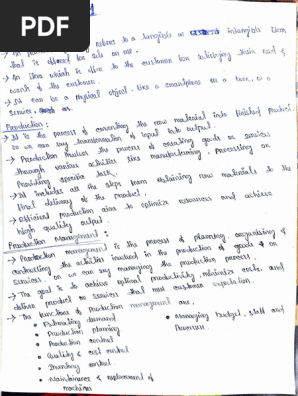 PDF
→ A product refers to a tangible or intangible item
that is offered for sale on one.
→ An item which is offer to the customer for satisfying their need &
wants of the customer.
→ It can be a physical object, like a smartphone or a book, or a
service
Production :-
→ It is the process of converting the raw material into finished product.
or we can say transformation of input into output.
→ Production means the process of creating goods or services
through various activities like manufacturing, processing or
Providing specific task.
→ It includes all the steps from obtaining raw materials to the
final delivery of the product.
→ Efficient production aims to optimize resources and achieve
high quality output.
Production Management :-
→ Production management is the process of planning, organising &
controlling the activities involved in the production of goods or
services. or we can say managing the production process.
→ The goal is to achieve optimal productivity, minimize costs, and
deliver product or services that meet customer expectation.
→ The functions of Production management are,
• Estimating demand.
• Production planning
• Production control
• Quality & cost control
• Inventory control
• Maintenance & replacement of
machines
• Managing budget, staff and
Processes.